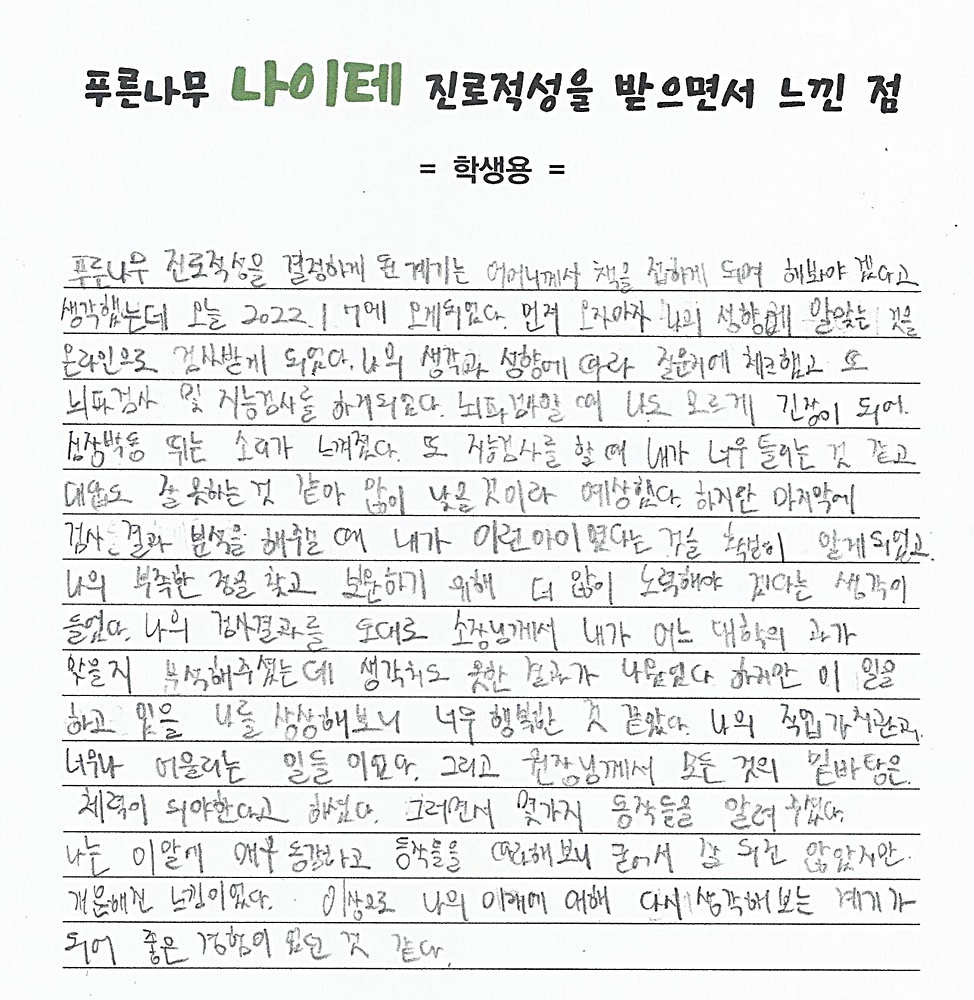 푸른나무 나이테 진로적성을 받으면서 느낀 점
= 학생용 =
푸른나무 진로적성을 결정하게 된 계기는 어머니께서 책을 접하게 되어 해봐야 겠다고
생각했는데 오늘 2022.1 7에 오게되었다. 먼저 오자마자 나의 성향에 알맞는 것을
온라인으로 검사받게 되었다. 나의 생각과 성향에 따라 질문지에 체크했고 또
뇌파검사 및 지능검사를 하게되었다. 뇌파검사할 때 나도 모르게 긴장이 되어.
심장박동 뛰는 소리가 느껴졌다. 또 지능검사를 할 때 내가 너무 들리는 것 같고
대답도 잘 못하는 것 같아 많이 낮을 것이라 예상했다. 하지만 마지막에
검사 결과 분석을 해주실 때 내가 이런아이 였다는 것을 확실히 알게되었고
나의 부족한 점을 찾고 보완하기 위해 더 많이 노력해야 겠다는 생각이
들었다. 나의 검사결과를 토대로 소장님께서 내가 어느 대학의 과가
맞을지 분석해주셨는데 생각치도 못한 결과가 나왔었다 하지만 이 일을
하고 있을 나를 상상해보니 너무 행복한 것 같았다. 나의 직업가치관과.
너무나 어울리는 일들 이었다. 그리고 원장님께서 모든 것의 밑바탕은.
체력이 되야한다고 하셨다. 그러면서 몇가지 동작들을 알려 주셨다.
나는 이말에 매우 동감하고 동작들을 따라해보니 굳어서 잘 되진 않았지만.
개운해진 느낌이었다. 이상으로 나의 미래에 대해 다시 생각해 보는 계기가
되어 좋은 경험이 였던 것 같다.